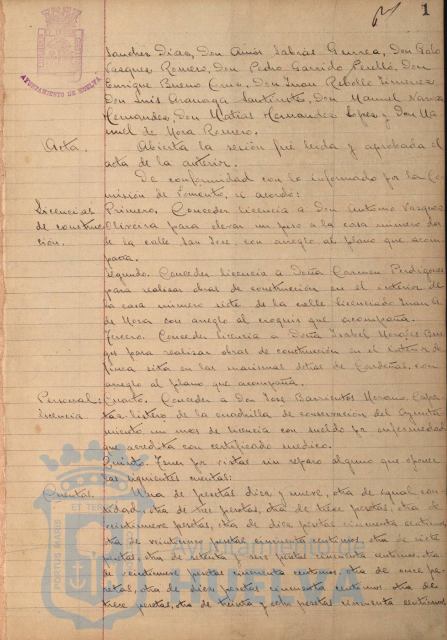 1
AYUNTAMIENTO DE HUELVA
Sanchez Diaz, Don Amós Sabrás Gurrea, Don Galo
Vazquez Romero, Don Pedro Garrido Perelló, Don
Enrique Bueno Cruz, Don Juan Rebollo Jimenez
Don Luis Don Manuel
Hernandez, Don Matías Hernandez Lopez y Don Ma
nuel de Mora Romero.
Acta.
Abierta la sesión fué leida y aprobada el
acta de la anterior.
De conformidad con lo informado por la Co
misión de Fomento, se acordó:
Licencias
de construc
ción.
Primero. Conceder licencia a Don Antonio Vazquez
Oliveira para elevar un piso a la casa número dos
de la calle San José, con arreglo al plano que acom
paña.
Segundo. Conceder licencia a Doña Carmen Perdigones
para realizar obras de construcción en el interior de
la casa número siete de la calle Licenciado Juan A.
de Mora con arreglo al croquis que acompaña.
Tercero. Conceder licencia a Doña Isabel
para realizar obras de construcción en el interior de
finca sita en las marismas detras de Cardeñas, con
arreglo al plano que acompaña.
Personal:
Licencia.
Cuarto. Conceder a Don José Barrientos Moreno, Capa
taz listero de la cuadrilla de conservación del Ayunta
miento un mes de licencia con sueldo por enfermedad
que acredita con certificado médico.
Quinto. Tener por vistas sin reparo alguno que oponer
las siguientes cuentas:
Cuentas.
Una de pesetas diez y nueve, otra de igual can
tidad, otra de tres pesetas, otra de trece pesetas, otra de
veintinueve pesetas, otra de diez pesetas cincuenta centimos
otra de veintiuna pesetas cincuenta centimos, otra de siete
pesetas, otra de setenta y seis pesetas cincuenta centimos, otra
de veintinueve pesetas cincuenta centimos, otra de once pe
setas, otra de diez pesetas cincuenta centimos, otra de
trece pesetas, otra de treinta y ocho pesetas cincuenta centimos
PORTUS MARIS ET TERRAE
Ayuntamiento
HUELVA